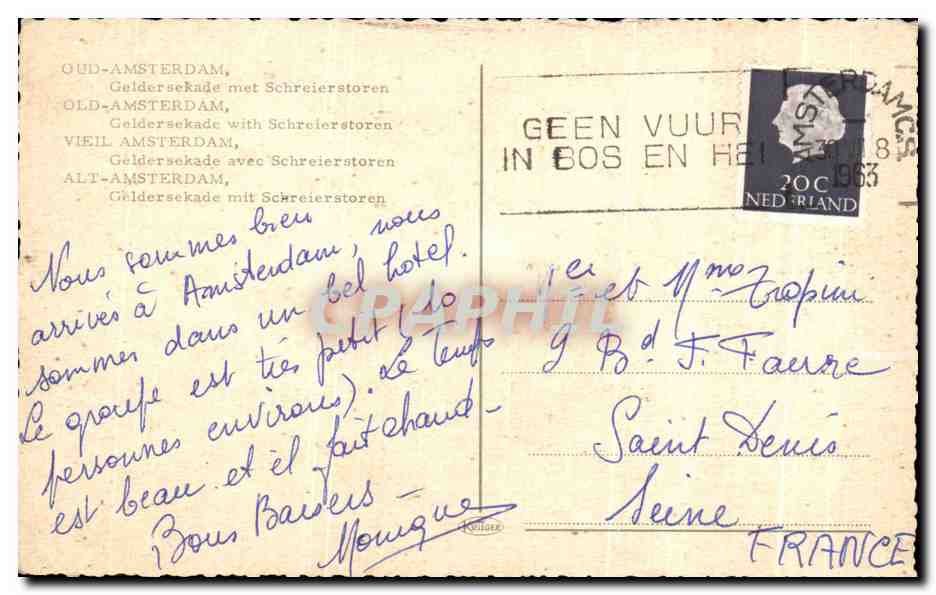 OUD-AMSTERDAM,
Geldersekade met Schreierstoren
OLD-AMSTERDAM,
Geldersekade with Schreierstoren
VIEIL AMSTERDAM,
Géldersekade avec Schreierstoren
ALT-AMSTERDAM,
Geldersekade mit Schreierstoren
GEEN VUUR
IN BOS EN HEI
AMSTERDAM C.S.
8
1963
20 C
NEDERLAND
Nous sommes bien
arrivés à Amsterdam, nous
sommes dans un bel hotel.
Le groupe est très petit (40
personnes environs). Le temps
est beau et il fait chaud -
Bons Baisers -
Monique
et Mme Tropini
9 Bd F. Faure
Saint Denis
Seine
FRANCE
CPAPHIL